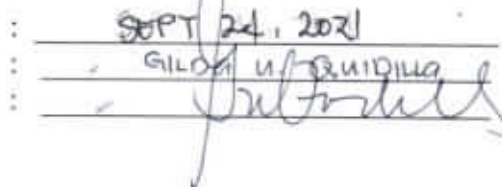 : SEPT 24, 2021
: GILDA U. QUIDILLA
: